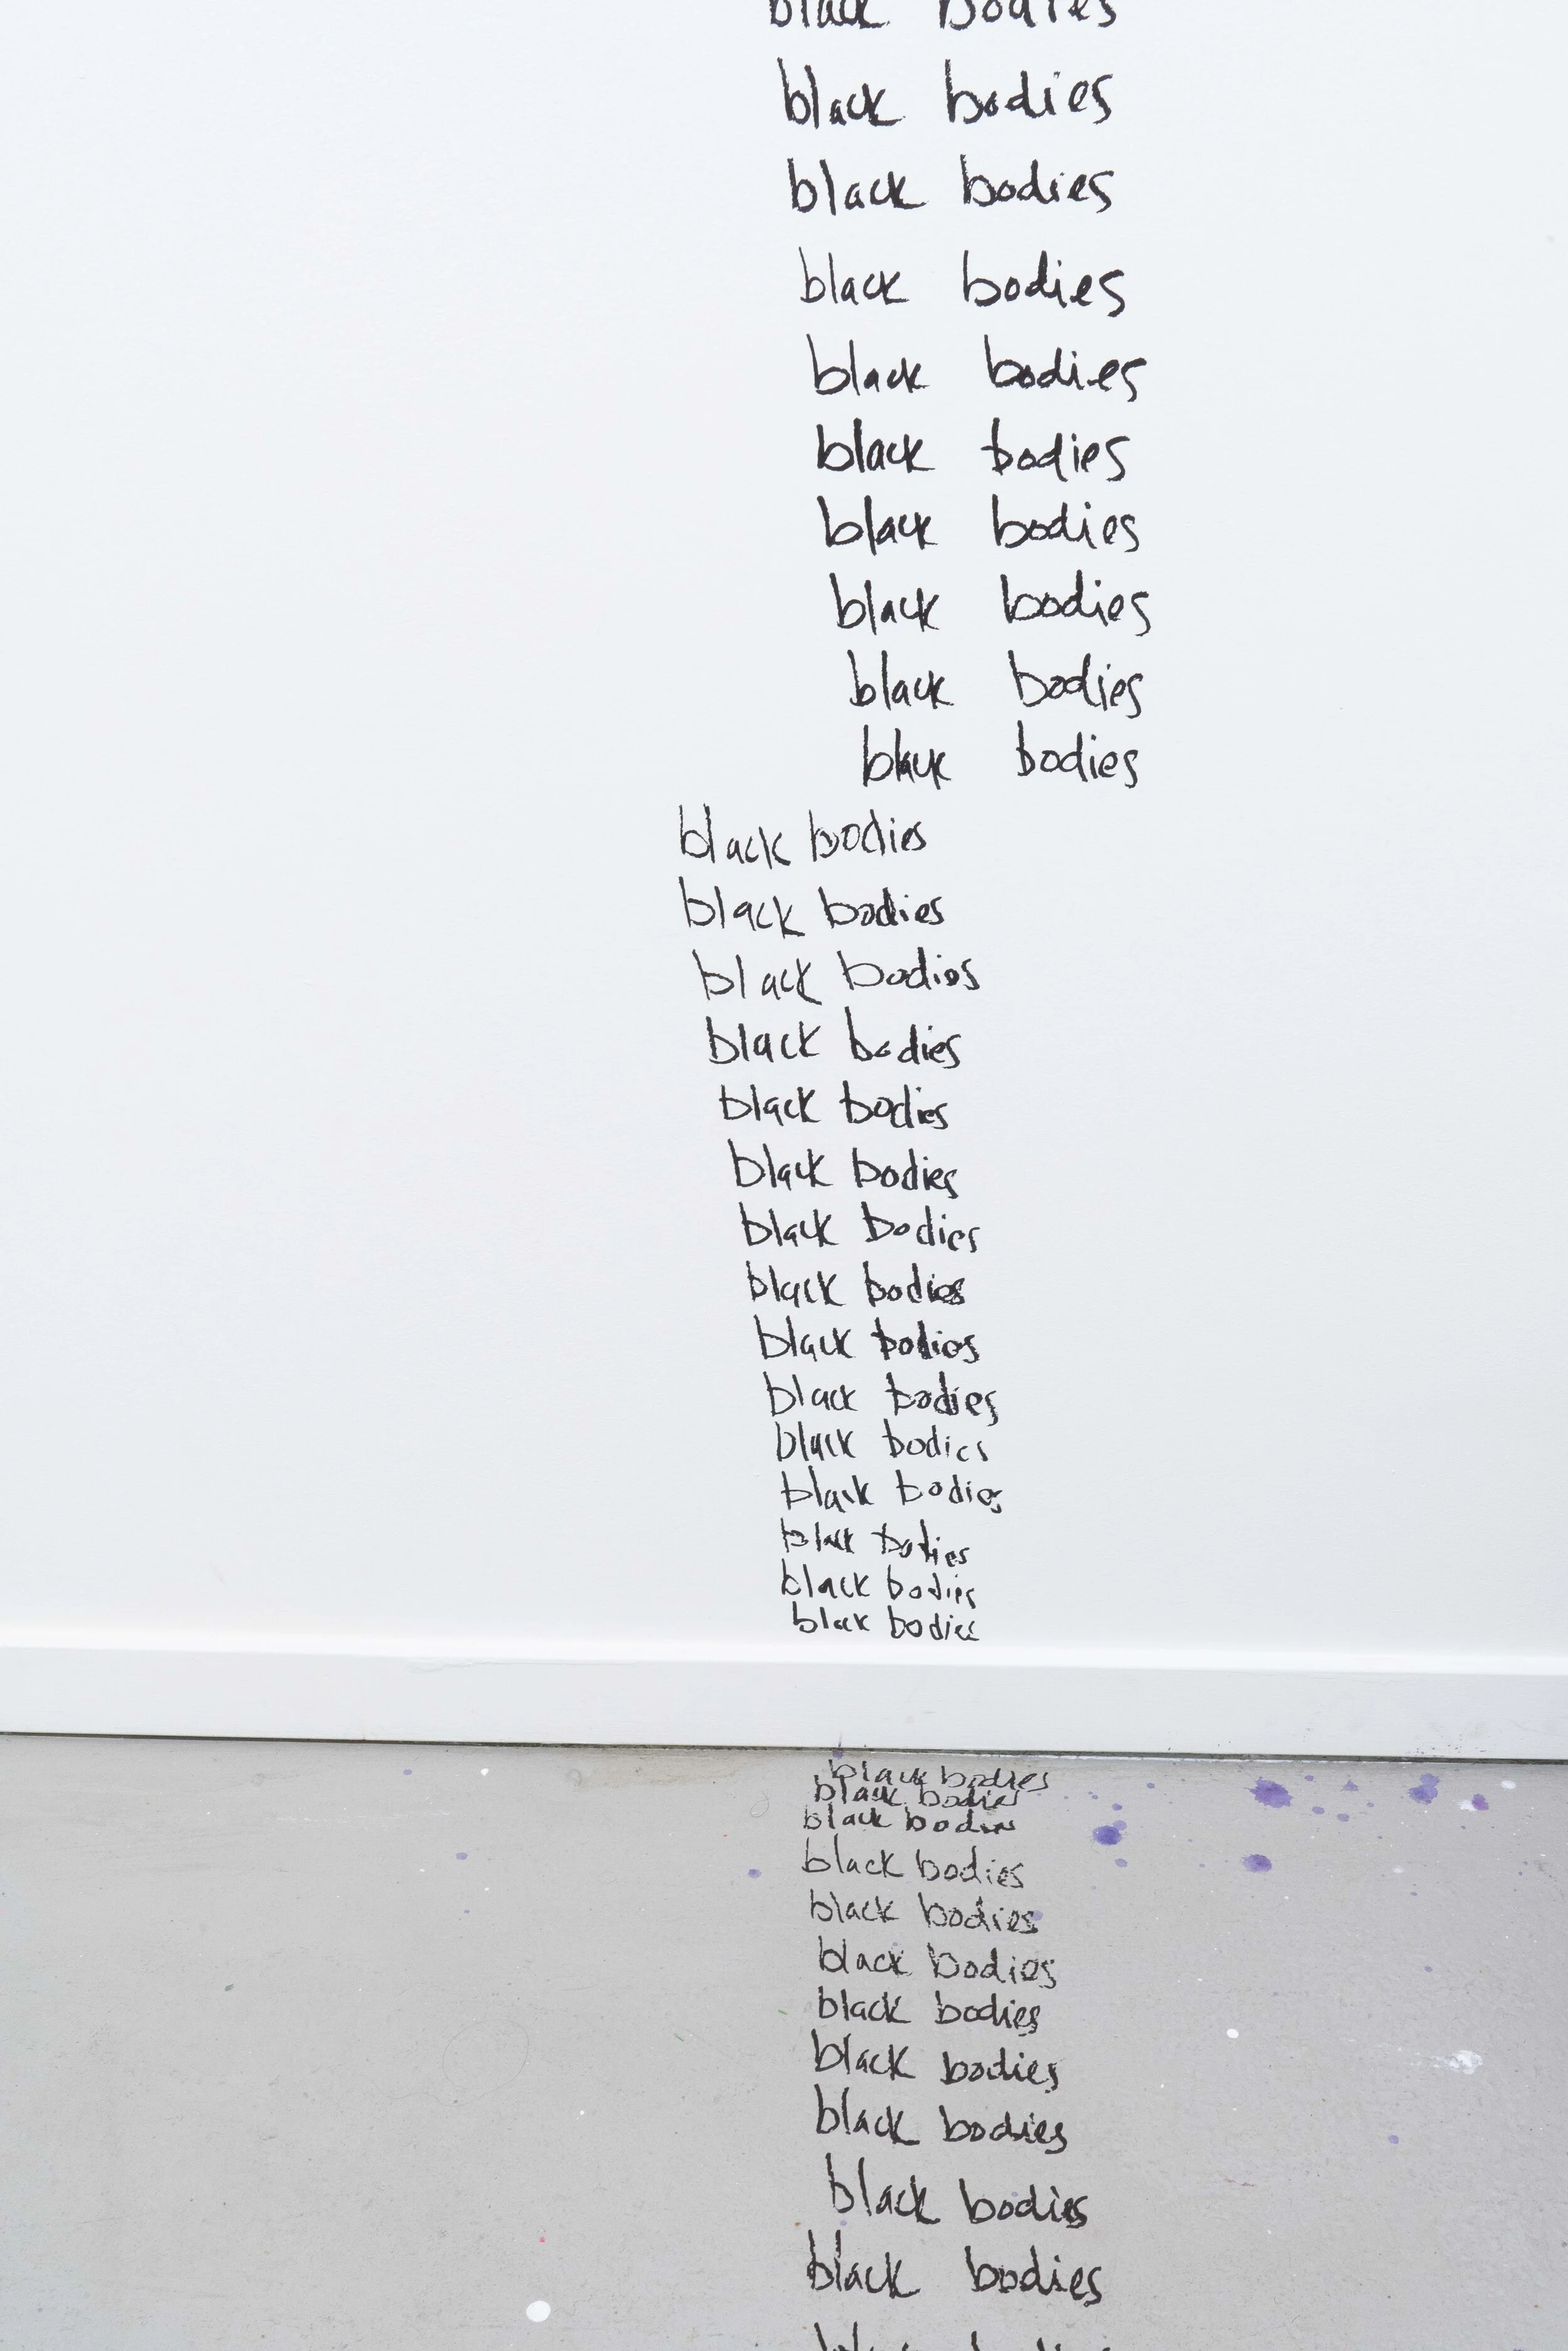 black bodies
black bodies
black bodies
black bodies
black bodies
black bodies
black bodies
black bodies
black bodies
black bodies
black bodies
black bodies
black bodies
black bodies
black bodies
black bodies
black bodies
black bodies
black bodies
black bodies
black bodies
black bodies
black bodies
black bodies
black bodies
black bodies
black bodies
black bodies
black bodies
black bodies
black bodies
black bodies
black bodies
black bodies
black bodies
black bodies